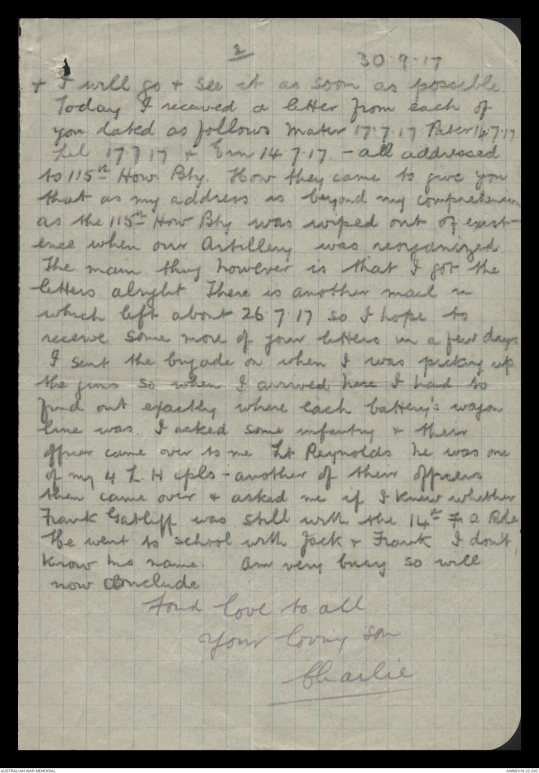 1
30.9.17
+ I will go + see it as soon as possible
Today I received a letter from each of
you dated as follows Mater 17.7.17 Pater 14.7.17
17 7 17 + 14.7.17. - all addressed
to 115th How Bty. How they came to give you
that as my address is beyond my comprehension
as the 115th How Bty was wiped out of exist-
ence when our Artillery was reorganized
The main thing however is that I got the
letters alright There is another mail in
which left about 26 7 17 so I hope to
receive some more of your letters in a few days
I sent the brigade on when I was picking up
the guns so when I arrived here I had to
find out exactly where each battery's wagon
line was. I asked some infantry + their
officer came over to me Lt Reynolds he was one
of my 4 L. H cpls - another of their officers
then came over + asked me if I knew whether
Frank Gatliff was still with the 14th F a Bde
He went to school with Jack + Frank I don't
know his name. Am very busy so will
now conclude
Fond love to all
Your loving son
Charlie
AUSTRALIAN WAR MEMORIAL